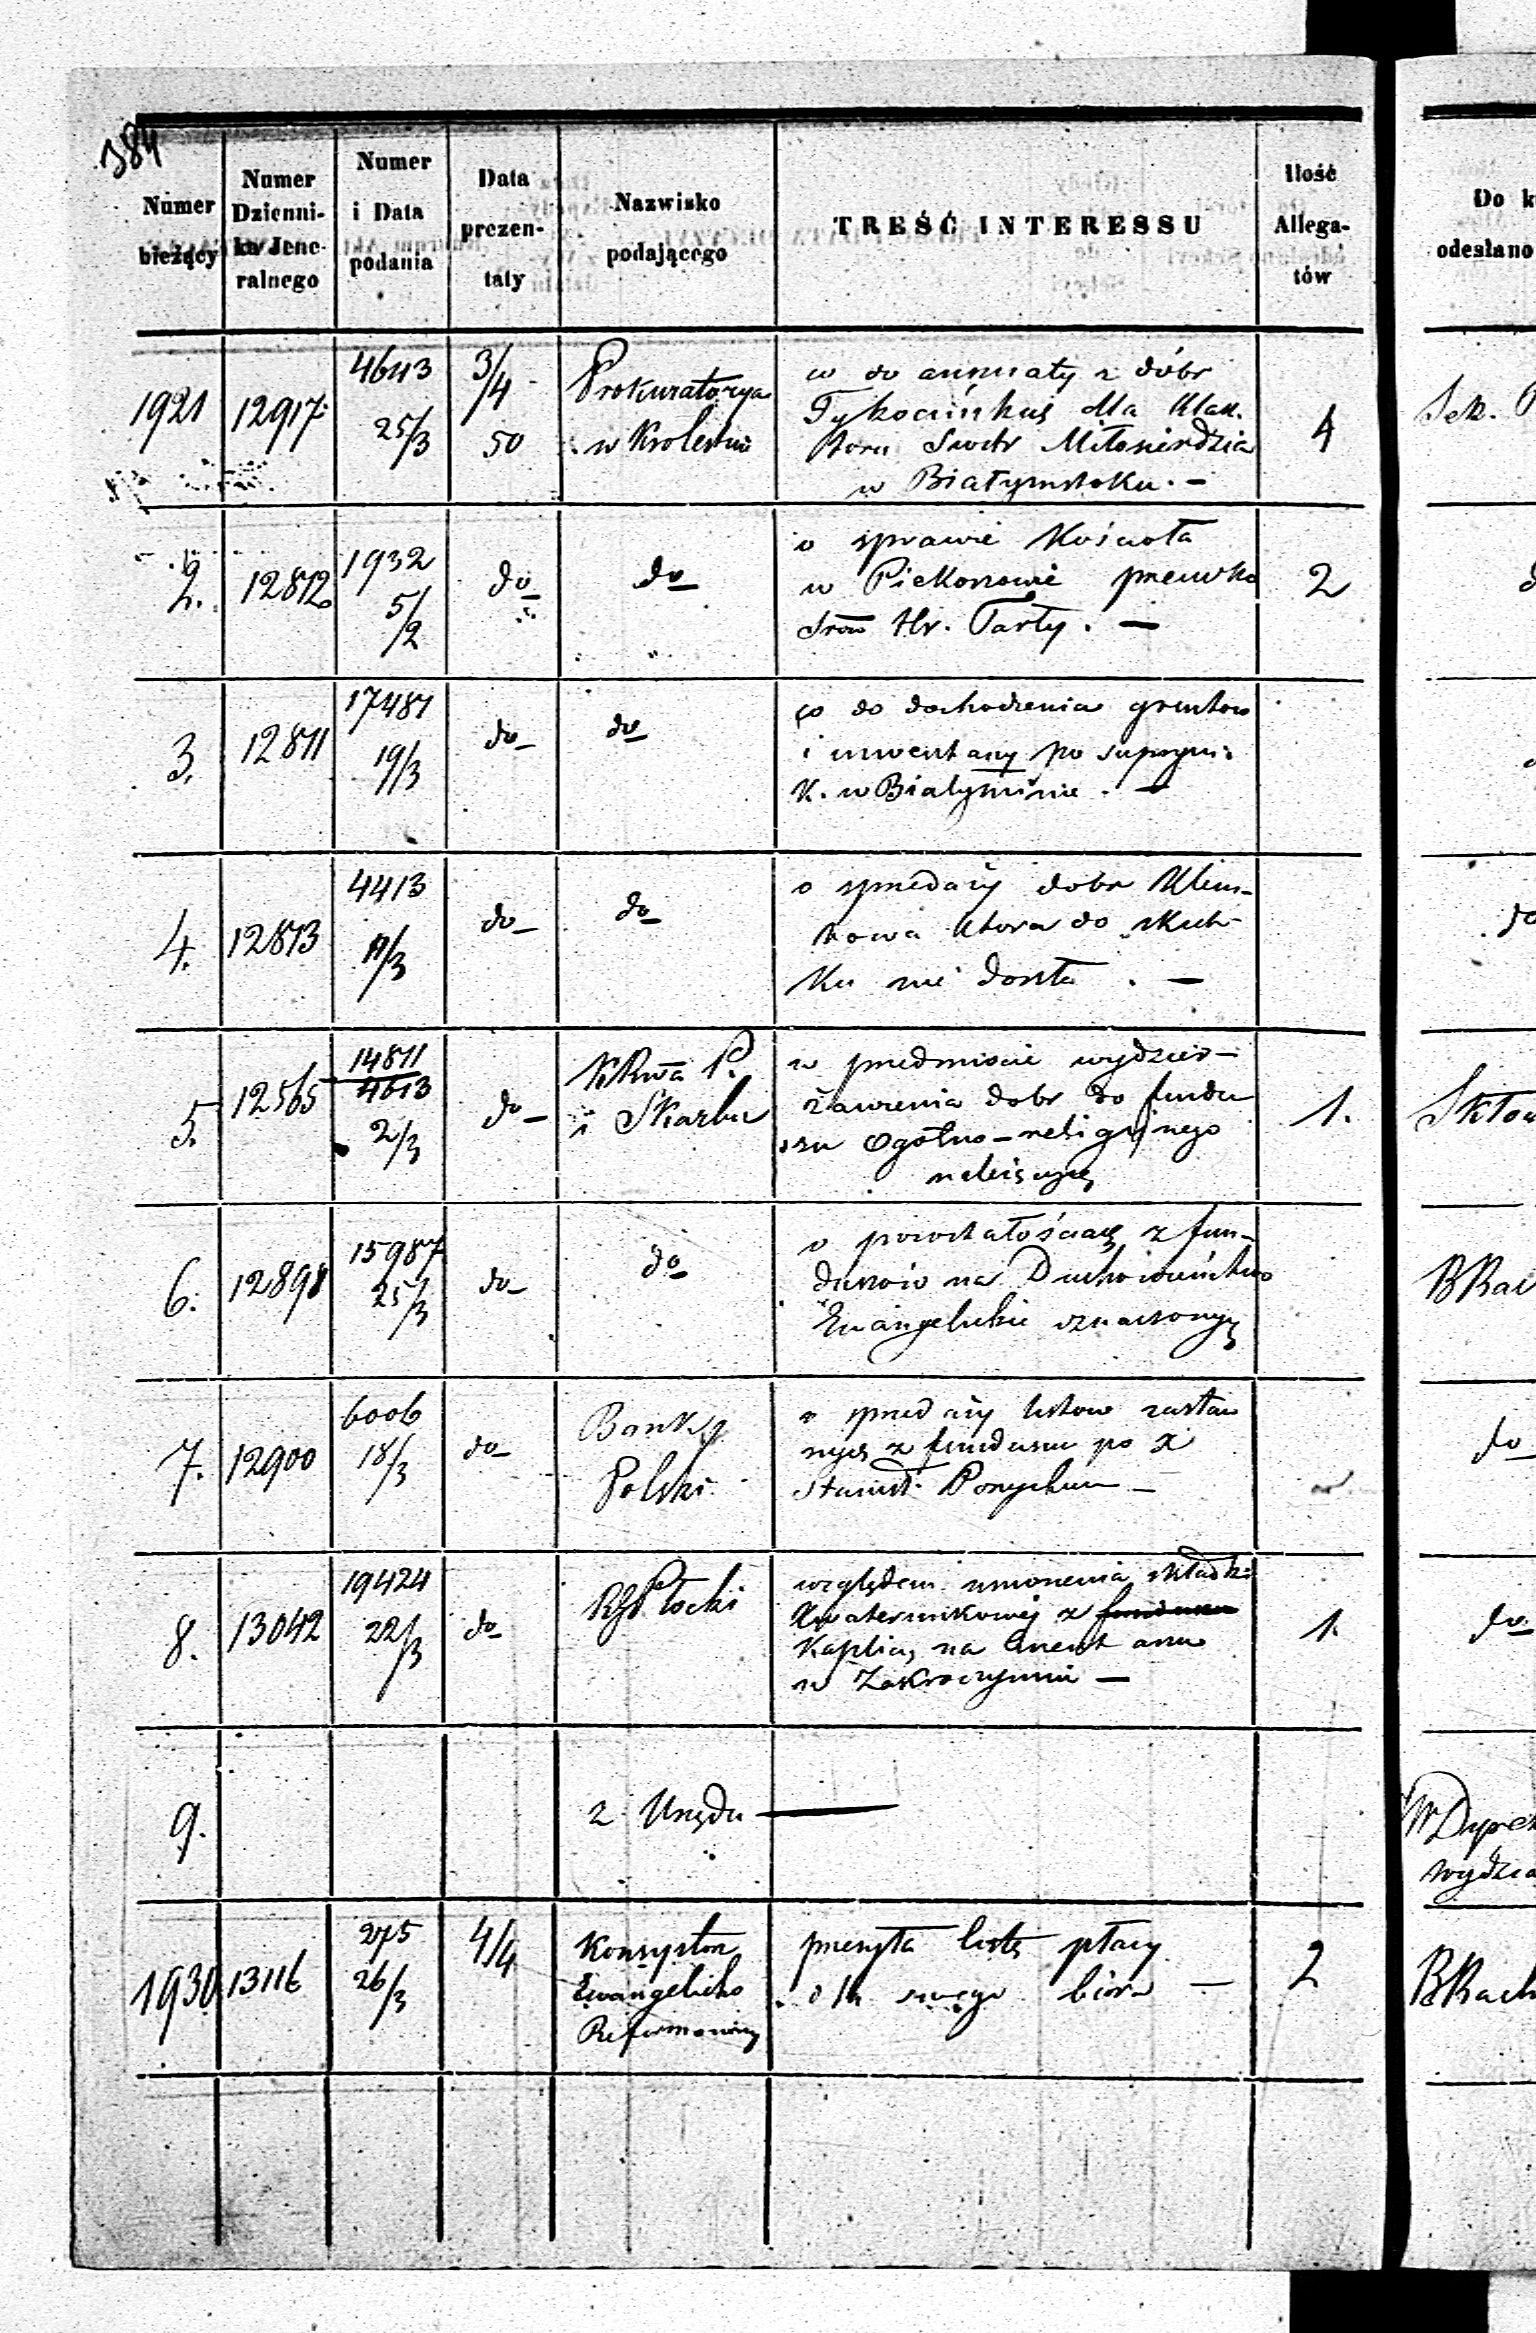 384
Numer bieżący
Numer Dzienni- ka Jene- ralnego
Numer i Data podania
Data prezen- taty
Nazwisko podającego
TREŚĆ INTERESSU
Ilość Allega- tów
Do k
odesłano
1921 12917 4643 25/3 3/4 50
Prokuratorya
w Krolestwie
w do annuaty z dóbr
Tykocińskich dla Klasz.
toru Siostr Miłosierdzia
w Białymstoku. —
4
Sek.
2. 12812 1932 5/2 do do
o sprawie Kościoła
w Piekoszowie przeciwko
Srom Hr. Tarły. —
2
3. 12811 17481 19/3 do do
co do dochodzenia gruntow
i inwentarzy po suprym:
K. w Białyninie. —
4. 12813 4413 11/3 do do
o sprzedaży dobr Klim-
towa ktora do skut-
ku nie doszła. —
do
5. 12565 14811 4613 2/3 do
KRwa P.
i Skarbu
w przedmiocie wydzier-
żawienia dobr do fundu
szu Ogólno-religijnego
należących
1.
6. 12898 15987 25/3 do do
o pozostałościach z fun-
duszów na Duchowieństwo
Ewangelickie oznaczonych
BRac
7. 12900 6006 18/3 do
Bank
Polski
o sprzedaży listow zastaw
nych z funduszu po X
Stanisł. Ponych
do
8. 13042 19424 22/3 do
RG Płocki
względem umorzenia składki
Kwaterunkowej z funduszu
Kaplicy na Cmentarzu
w Zakroczymiu —
1.
do
9.
z Urzędu —
Dyrek
wydzia
1930 13116 275 26/3 4/4
Konsystorz
Ewangelicko
Reformowany
przesyła listę płacy
swego biura —
2
BRach